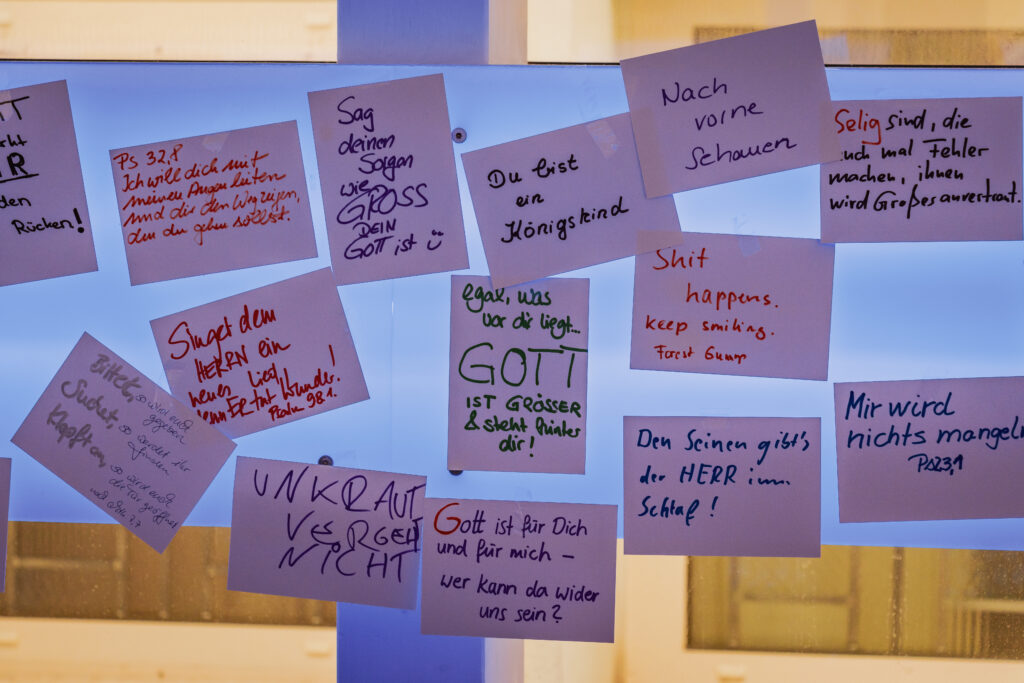 TT
cht
IR
den
Rücken!
Ps 32,8
Ich will dich mit
meinen Augen leiten
und dir den Weg zeigen,
den du gehen sollst.
Sag
deinen
Sorgen
wie
GROSS
DEIN
GOTT ist
Du bist
ein
Königskind
Nach
vorne
schauen
Selig sind, die
auch mal Fehler
machen, ihnen
wird Großes anvertraut.
Singet dem
HERRN ein
neues Lied
denn ER tut Wunder!
Psalm 98.1
egal, was
vor dir liegt...
GOTT
IST GRÖSSER
& steht hinter
dir!
Shit
happens.
keep smiling.
Forest Gump
Bittet, so wird euch
gegeben
Suchet, so werdet ihr
finden
Klopft an, so wird euch
die Tür geöffnet
UNKRAUT
VERGEHT
NICHT
Gott ist für Dich
und für mich –
wer kann da wider
uns sein?
Den Seinen gibt's
der HERR im
Schlaf!
Mir wird
nichts mangeln
Ps23,1